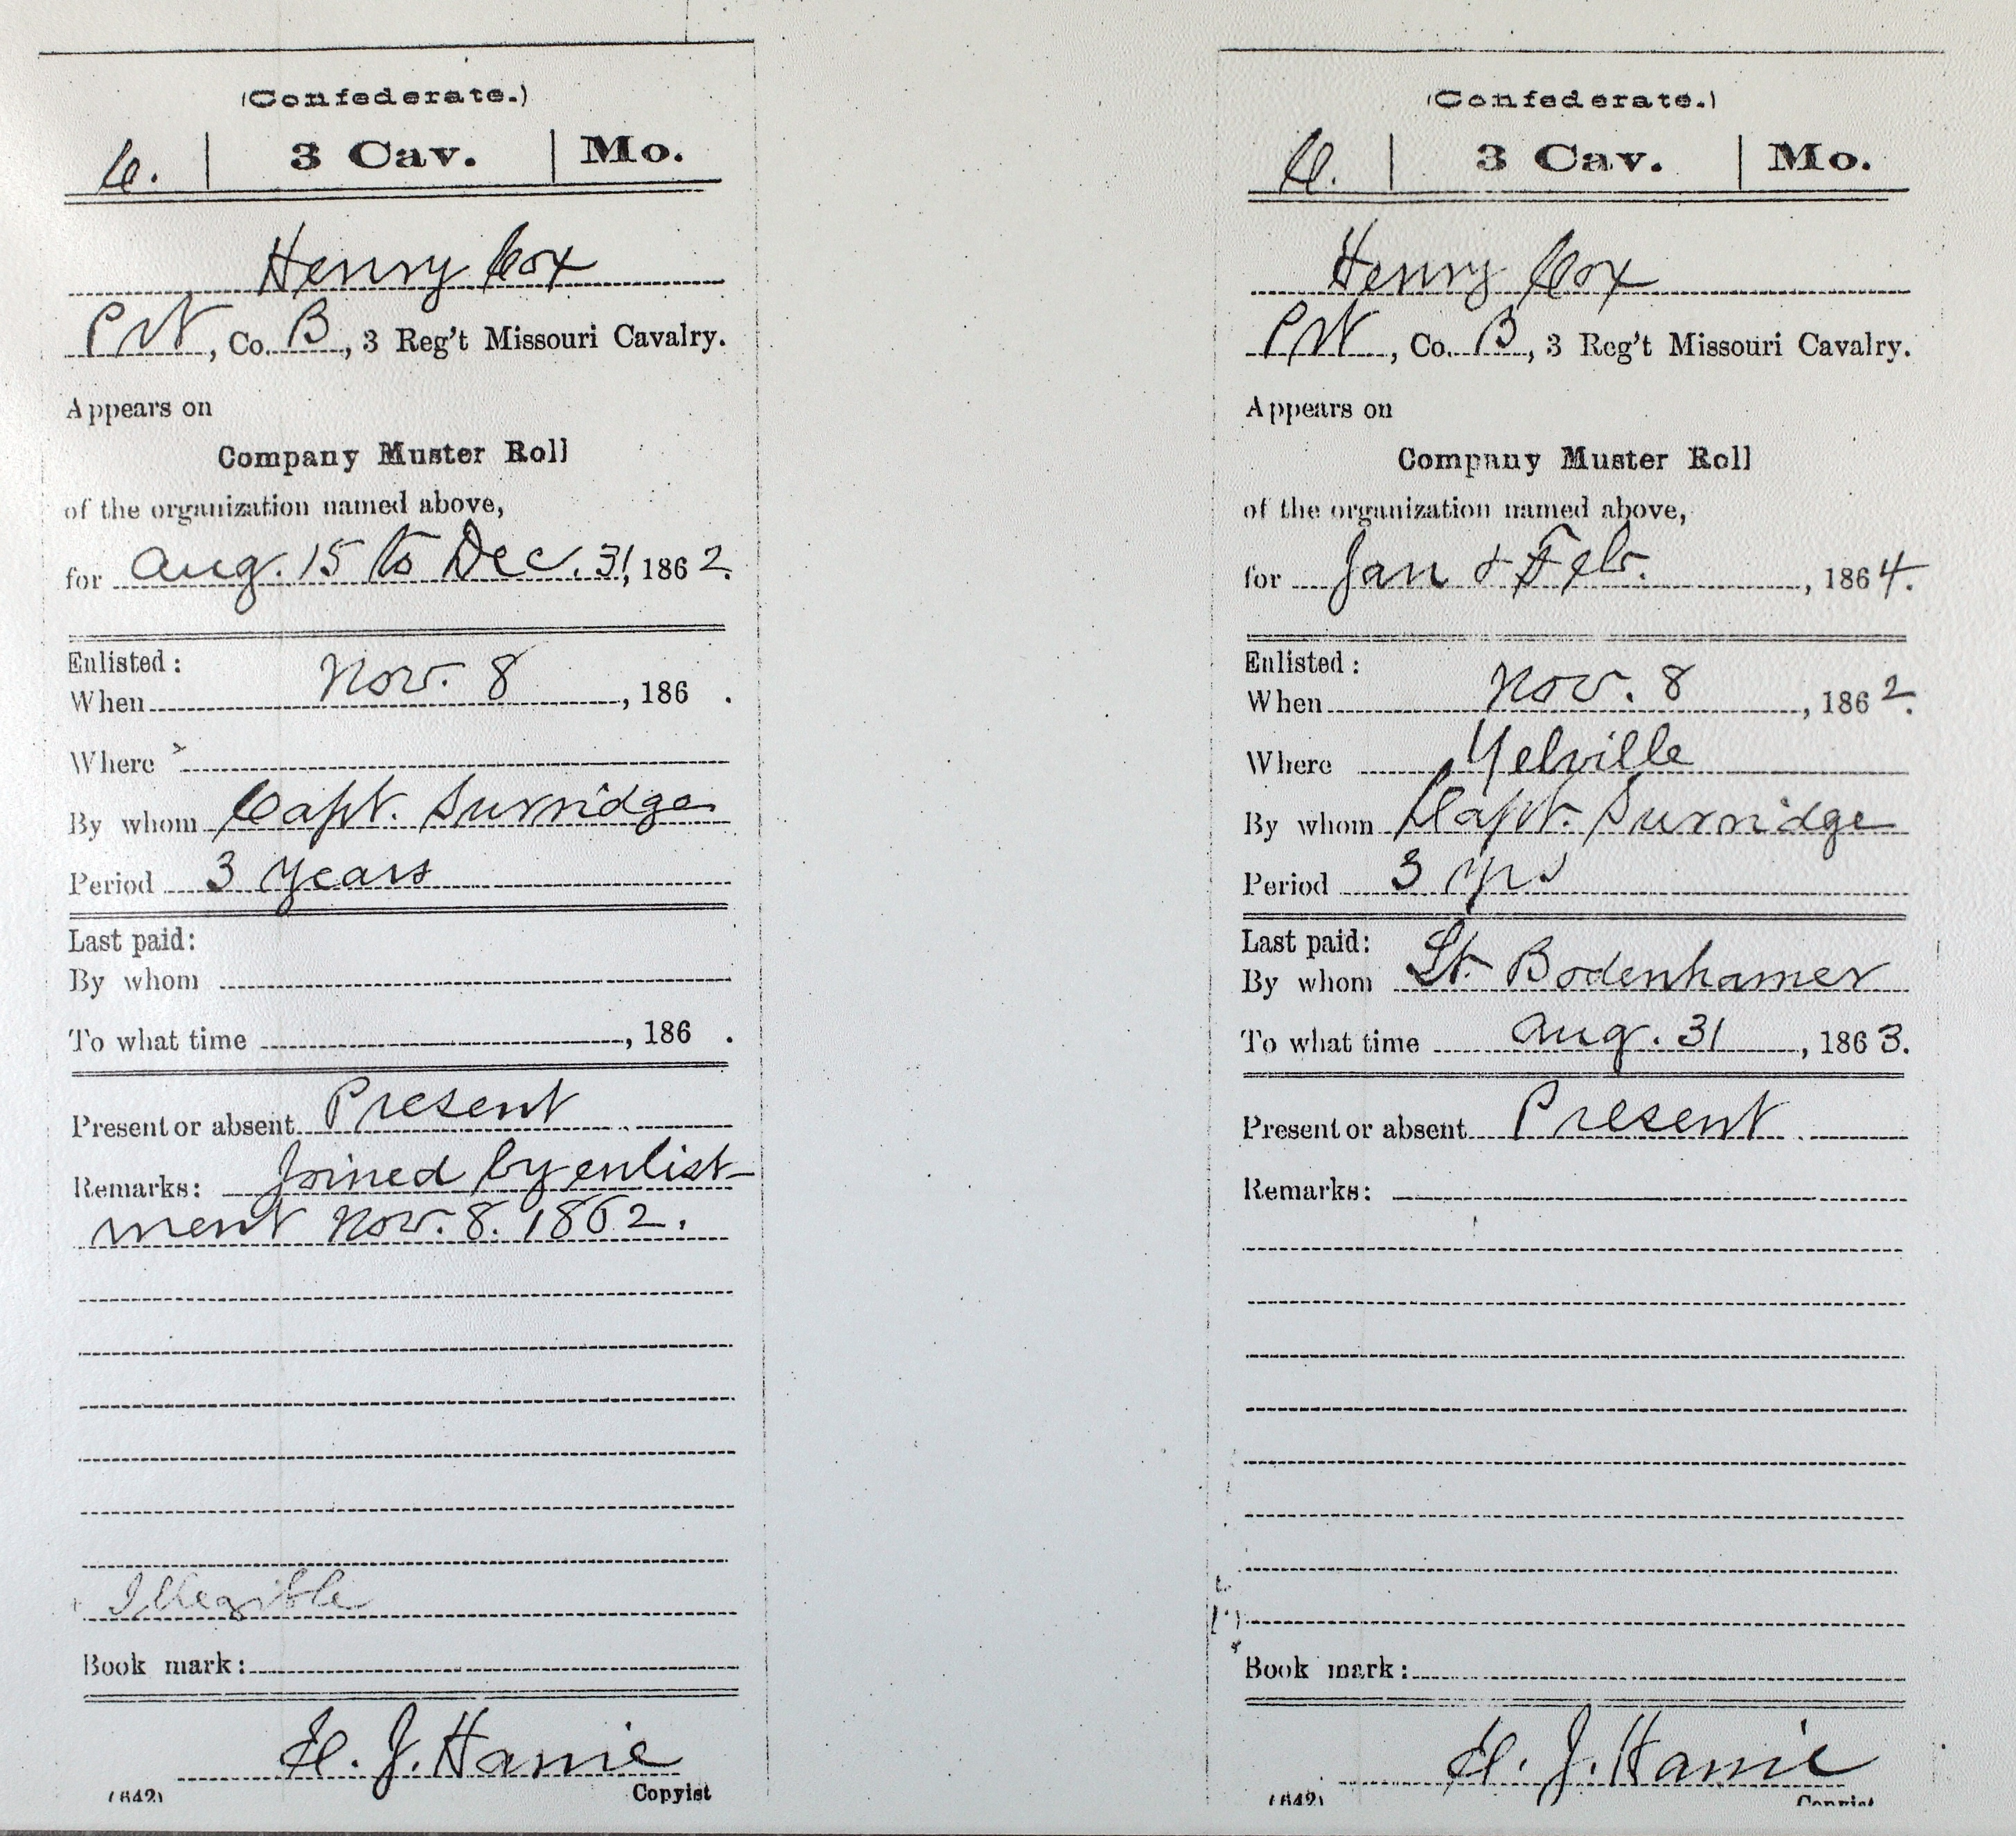 (Confederate.)
C. | 3 Cav. | Mo.
Henry Cox
Pvt, Co. B, 3 Reg't Missouri Cavalry.
Appears on
Company Muster Roll
of the organization named above,
for Aug. 15 to Dec. 31, 1862.
Enlisted:
When Nov. 8, 186 .
Where
By whom Capt. Surridge
Period 3 years
Last paid:
By whom
To what time , 186 .
Present or absent Present
Remarks: Joined by enlist-
ment Nov. 8. 1862.
Illegible
Book mark:
H. J. Hamie
(642) Copyist
(Confederate.)
C. | 3 Cav. | Mo.
Henry Cox
Pvt, Co. B, 3 Reg't Missouri Cavalry.
Appears on
Company Muster Roll
of the organization named above,
for Jan & Feb., 1864.
Enlisted:
When Nov. 8, 1862.
Where Yelville
By whom Capt. Surridge
Period 3 yrs
Last paid:
By whom Lt. Bodenhamer
To what time Aug. 31, 1863.
Present or absent Present
Remarks:
Book mark:
H. J. Hamie
(642) Copyist